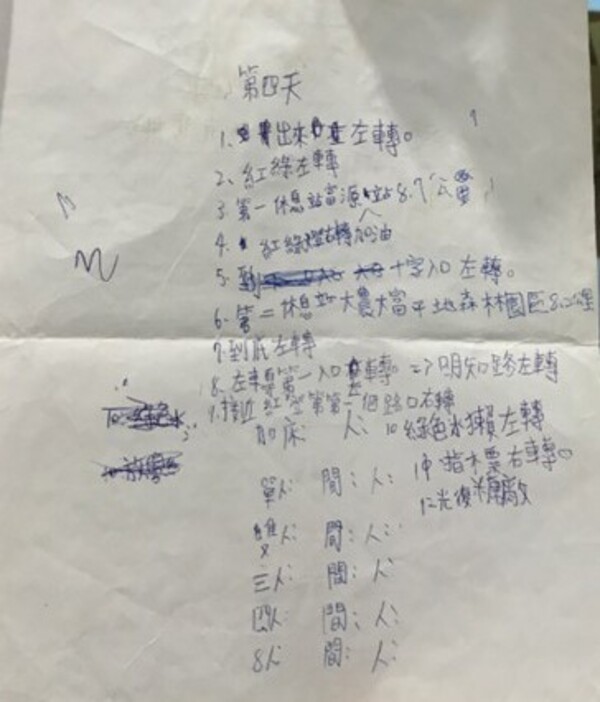 第四天
1. 出來左轉。
2. 紅綠左轉
3. 第一休息站富源站8.7公里
4. 紅綠燈右轉加油
5. 到十字入口左轉。
6. 第二休息站大農大富平地森林園區8.公里
7. 到底左轉
8. 左轉第一入口左轉 => 明知路左轉
9. 接近紅第一個路口右轉
10 綠色水獺左轉
11 指木票右轉。
12 光復糖廠
加床 人:
單人: 間: 人:
雙人: 間: 人:
三人: 間: 人:
四人: 間: 人:
8人: 間: 人: